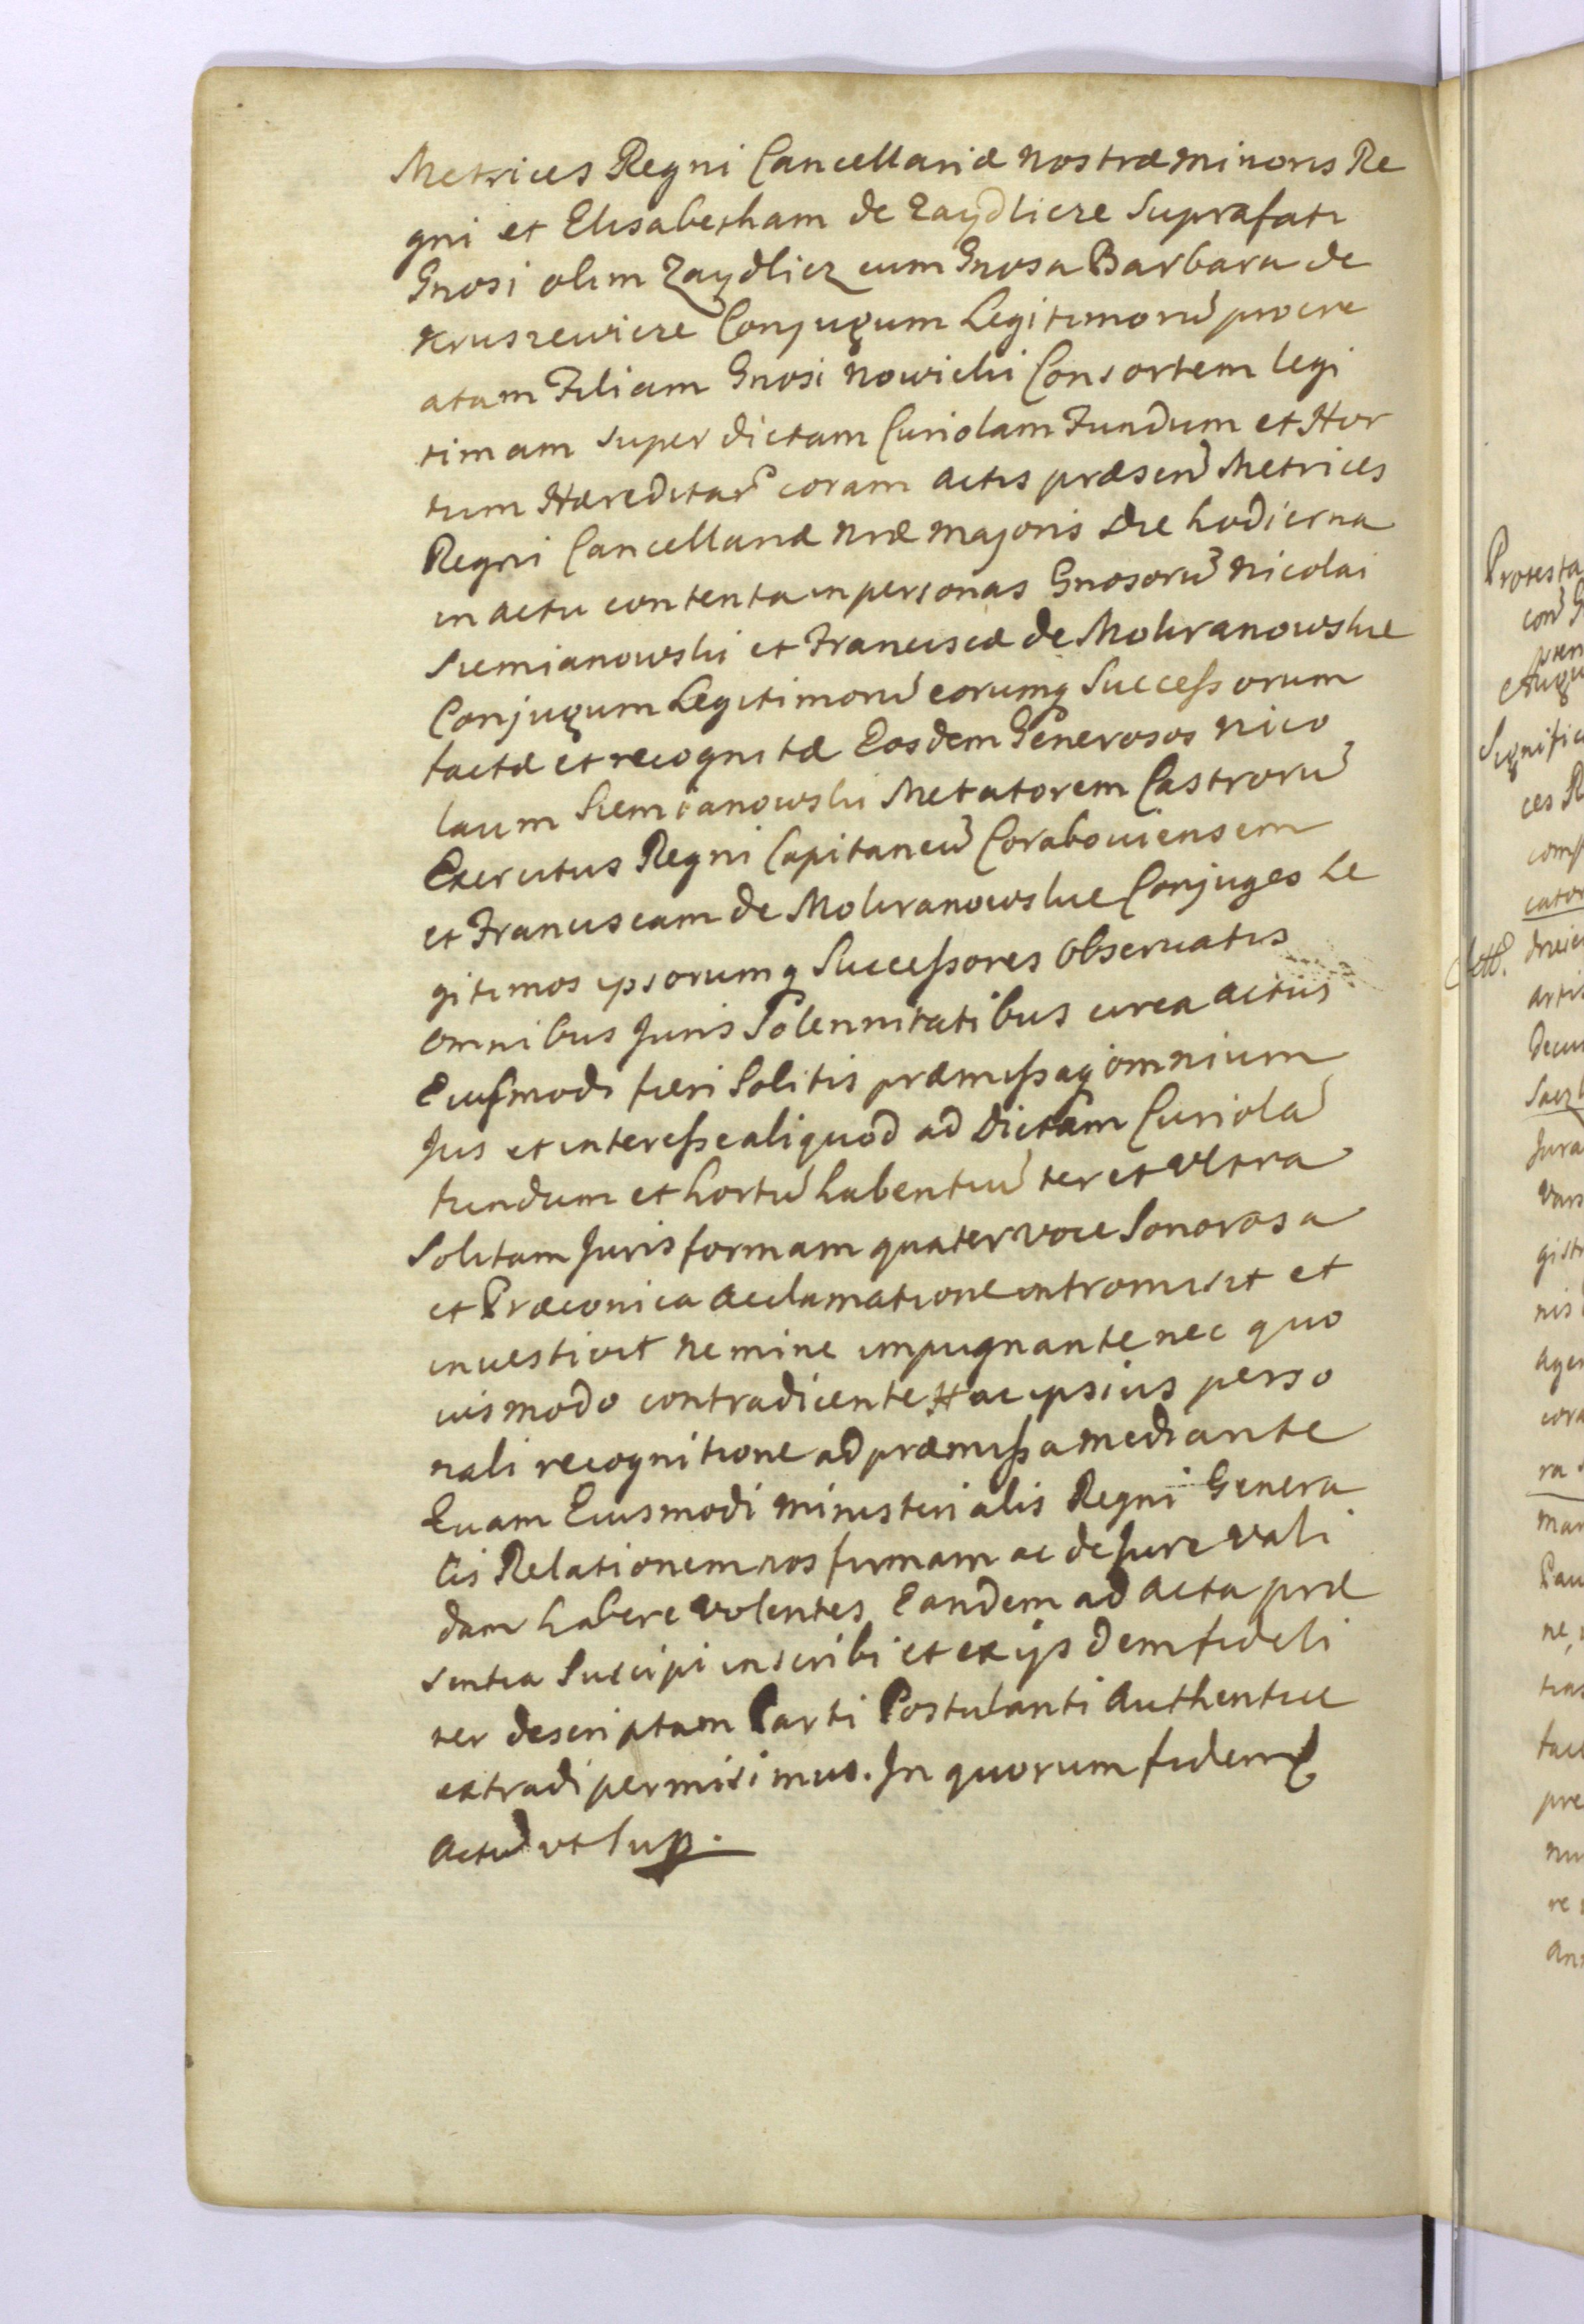 Metrices Regni Cancellariæ nostræ minoris Re
gni et Elisabetham de Zaydlicze Suprafati
Gnosi olim Zaydlicz cum Gnosa Barbara de
Kruszewicze Conjugum Legitimorũ procre
atam Filiam Gnosi Nowicki Consortem legi
timam super dictam Curiolam Fundum et Hor
tum Hæreditar̃ coram actis præsen̄ Metrices
Regni Cancellariæ nr̃æ majoris die hodierna
in actu contenta in personas Gnosorũ Nicolai
Siemianowski et Franciscæ de Mokranowskie
Conjugum Legitimorũ eorumq Successorum
factæ et recognitæ Eosdem Generosos Nico
laum Siemianowski Metatorem Castrorũ
Exercitus Regni Capitaneũ Corabouiensem
et Franciscam de Mokranowskie Conjuges Le
gitimos ipsorumq Successores Observatis
omnibus Juris Solennitatibus circa actus
Eiusmodi fieri Solitis præmissaq omnium
Jus et interesse aliquod ad Dictam Curiolã
fundum et hortũ habentiũ ter et Ultra
Solitam Juris formam quater voce Sonorosa
et Præconica acclamatione intromisit et
investivit nemine impugnante nec quo
vismodo contradicente Hac ipsius perso
nali recognitione ad præmissa mediante
Quam Eiusmodi Ministerialis Regni Genera
lis Relationem nos firmam ac de Jure vali
dam habere volentes Eandem ad acta præ
sentia Suscipi inscribi et ex ijsdem fideli
ter descriptam Parti Postulanti Authentice
extradi permisimus. In quorum fidem
Actũ ut Sup.
Protesta
Signific
ces R
comp
cator
artis
Jura
gistr
nis
cora
ra
mar
ne
tias
pre
re